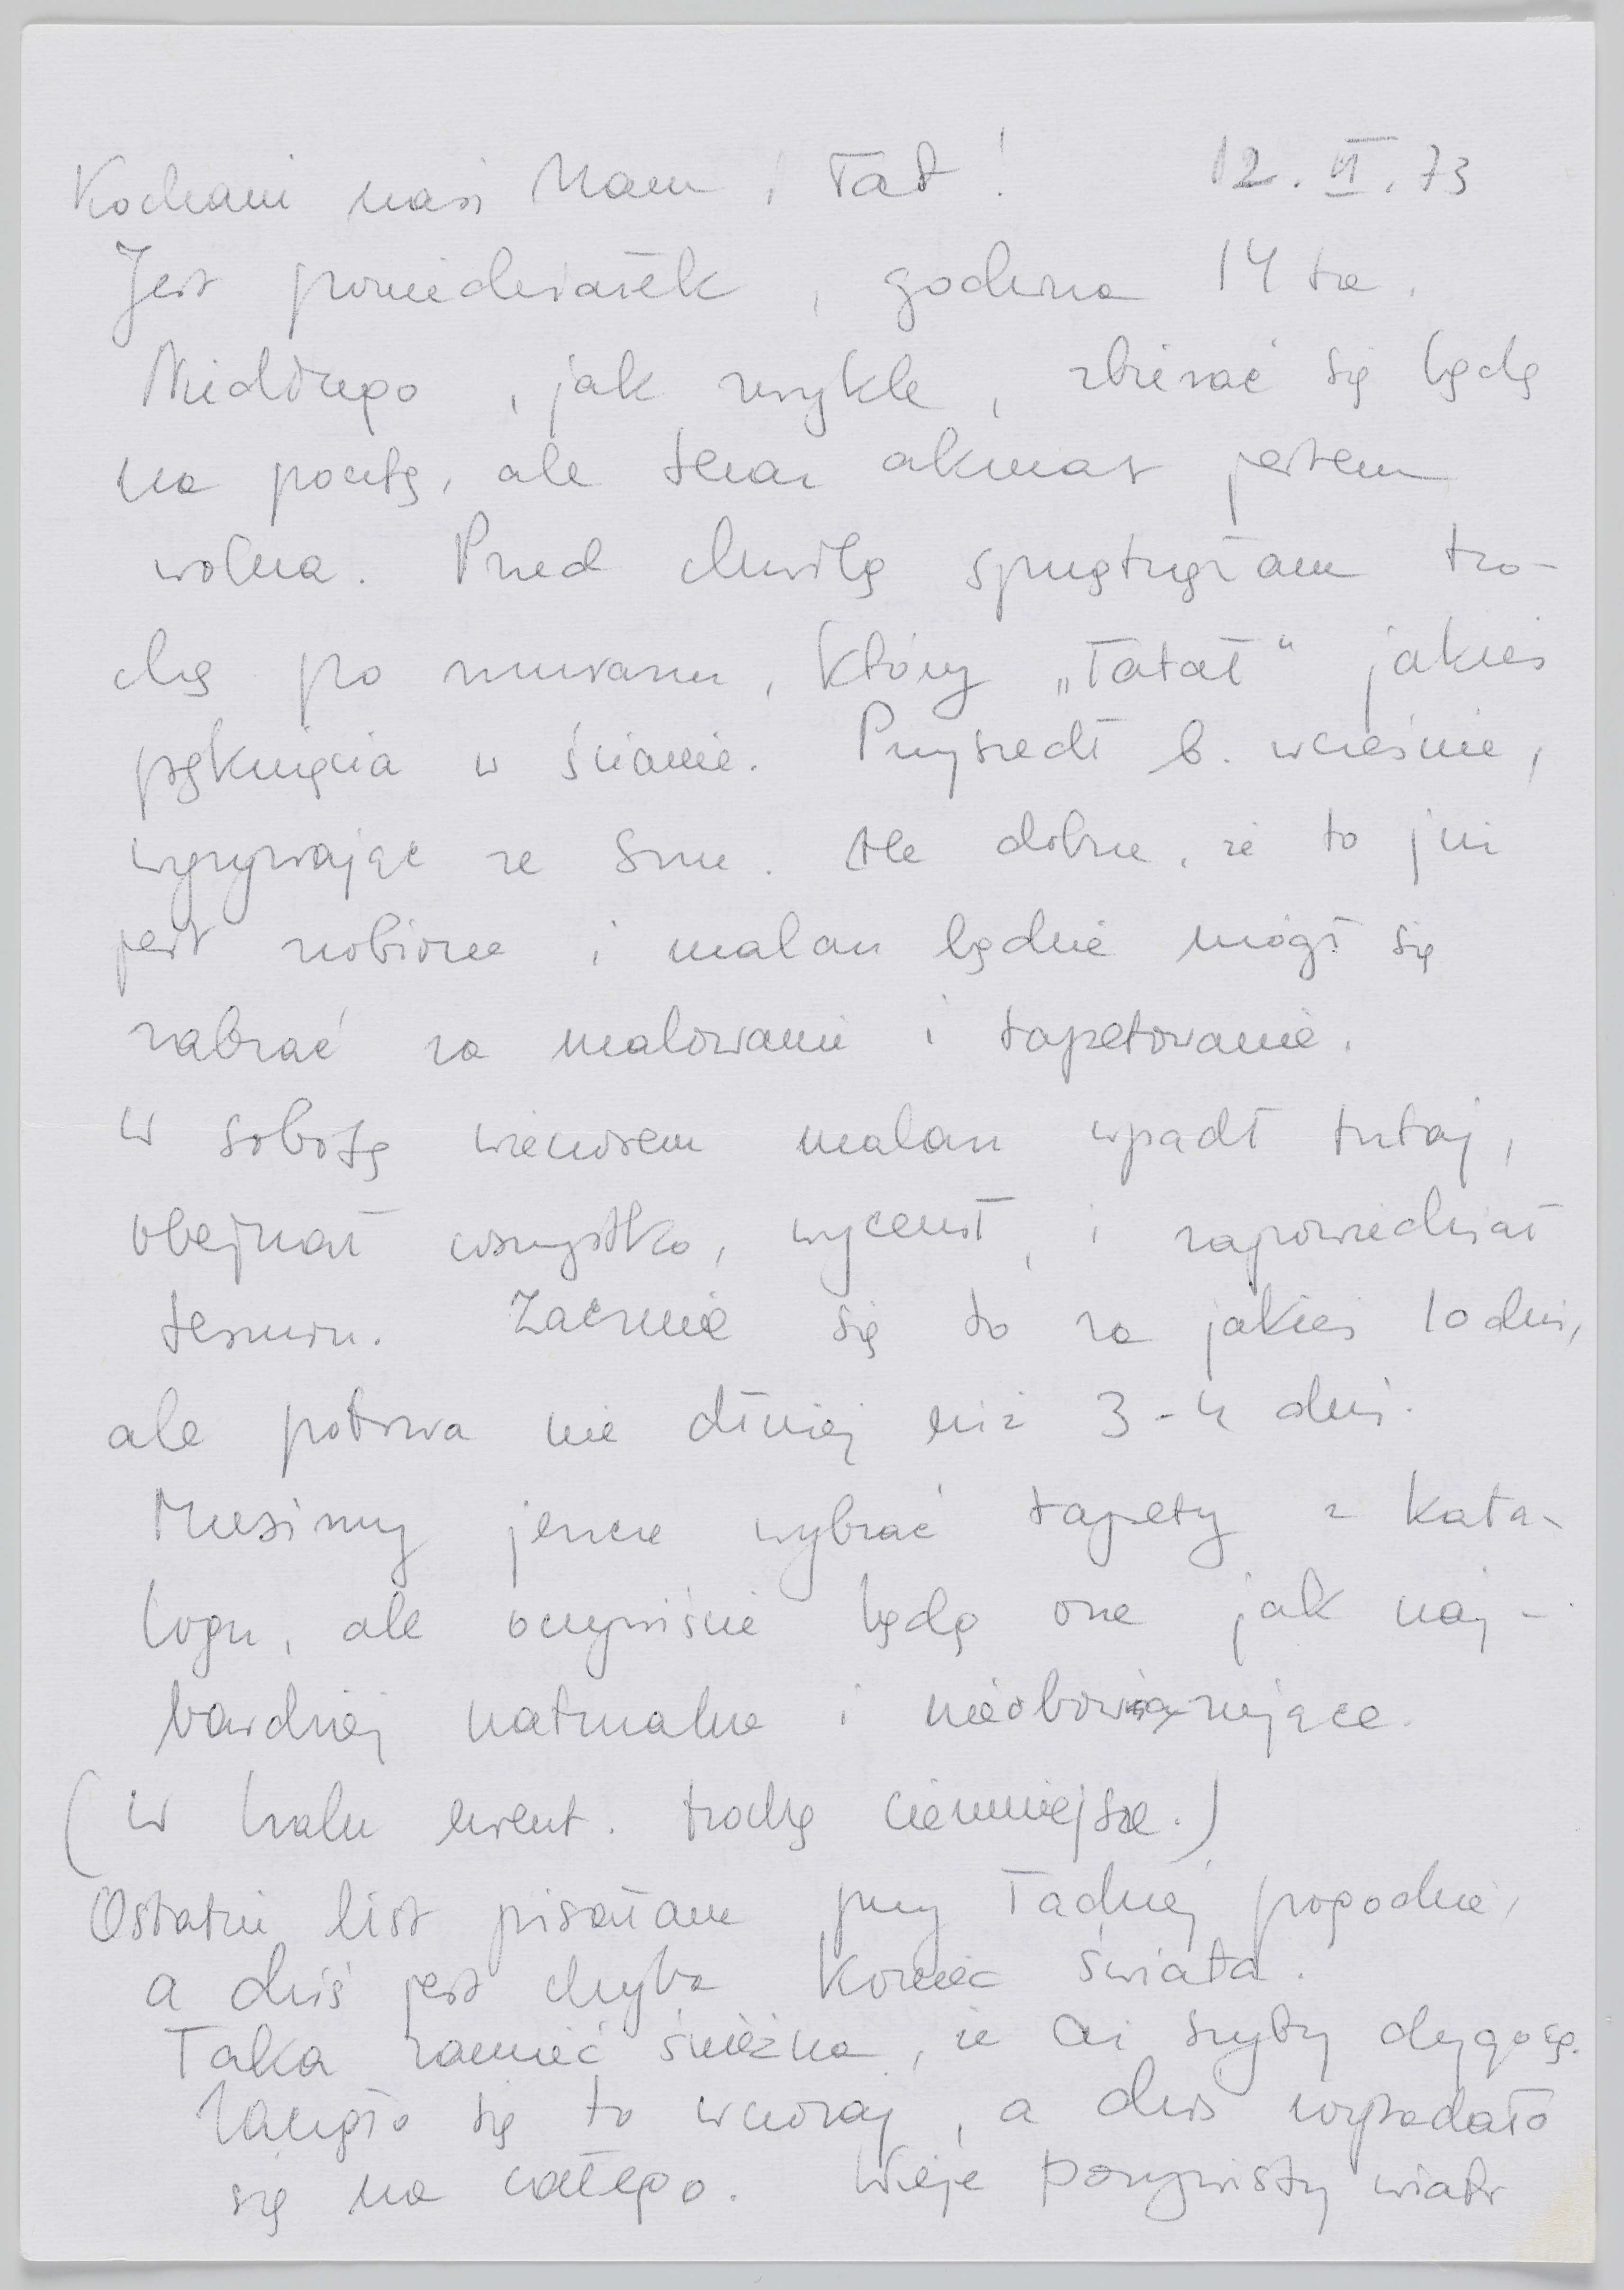 Kochani nasi Mam i Tat! 12.II.73
Jest poniedziałek, godzina 14ta.
Niedługo, jak zwykle, zbierać się będę
na pocztę, ale teraz akurat jestem
wolna. Przed chwilą sprzątnęłam tro-
chę po murarzu, który „łatał“ jakieś
pęknięcia w ścianie. Przyszedł b. wcześnie,
wyrywając ze snu. Ale dobrze, że to już
jest zrobione i malarz będzie mógł się
zabrać za malowanie i tapetowanie.
W sobotę wieczorem malarz wpadł tutaj,
obejrzał wszystko, wycenił, i zapowiedział
termin. Zacznie się to za jakieś 10 dni,
ale potrwa nie dłużej niż 3-4 dni.
Musimy jeszcze wybrać tapety z kata-
logu, ale oczywiście będą one jak naj-
bardziej naturalne i nieobowiązujące.
(W halu ewent. trochę ciemniejsze.)
Ostatni list pisałam przy ładnej pogodzie,
a dziś jest chyba koniec świata.
Taka zamieć śnieżna, że aż szyby dygocą.
Zaczęło się to wczoraj, a dziś
się na całego. Wieje porywisty wiatr